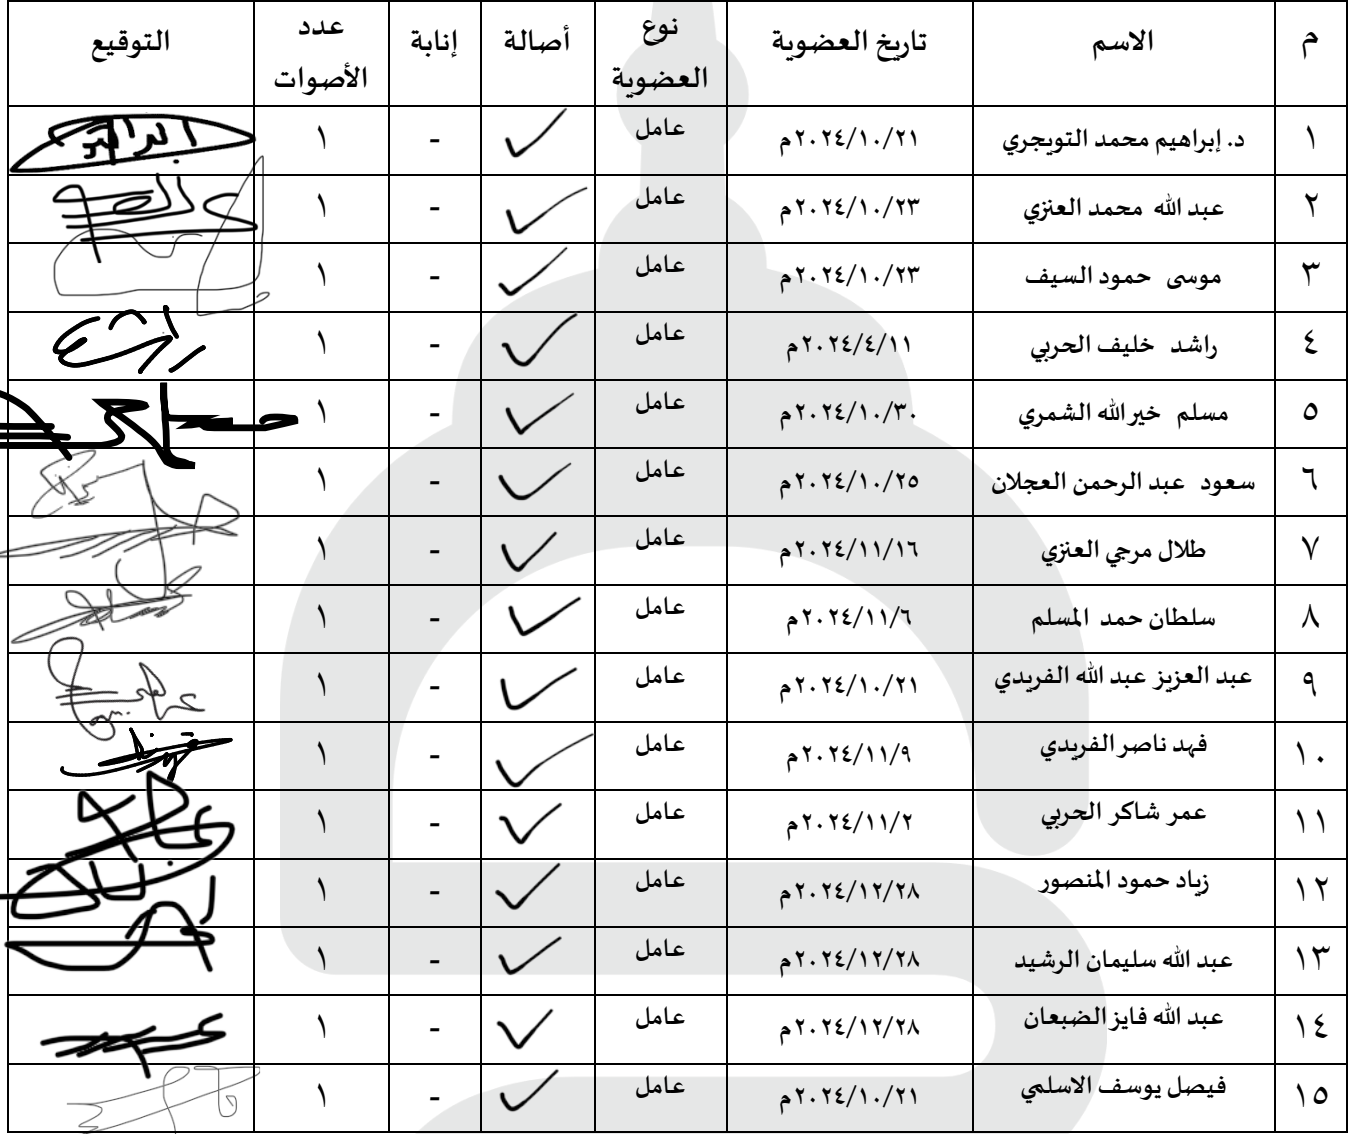 م الاسم تاريخ العضوية نوع العضوية أصالة إنابة عدد الأصوات التوقيع
١ د. إبراهيم محمد التويجري ٢٠٢٤/١٠/٢١م عامل ✓ - ١
٢ عبد الله محمد العنزي ٢٠٢٤/١٠/٢٣م عامل ✓ - ١
٣ موسى حمود السيف ٢٠٢٤/١٠/٢٣م عامل ✓ - ١
٤ راشد خليف الحربي ٢٠٢٤/٤/١١م عامل ✓ - ١
٥ مسلم خيرالله الشمري ٢٠٢٤/١٠/٣٠م عامل ✓ - ١
٦ سعود عبد الرحمن العجلان ٢٠٢٤/١٠/٢٥م عامل ✓ - ١
٧ طلال مرجي العنزي ٢٠٢٤/١١/١٦م عامل ✓ - ١
٨ سلطان حمد المسلم ٢٠٢٤/١١/٦م عامل ✓ - ١
٩ عبد العزيز عبد الله الفريدي ٢٠٢٤/١٠/٢١م عامل ✓ - ١
١٠ فهد ناصر الفريدي ٢٠٢٤/١١/٩م عامل ✓ - ١
١١ عمر شاكر الحربي ٢٠٢٤/١١/٢م عامل ✓ - ١
١٢ زياد حمود المنصور ٢٠٢٤/١٢/٢٨م عامل ✓ - ١
١٣ عبد الله سليمان الرشيد ٢٠٢٤/١٢/٢٨م عامل ✓ - ١
١٤ عبد الله فايز الضبعان ٢٠٢٤/١٢/٢٨م عامل ✓ - ١
١٥ فيصل يوسف الاسلمي ٢٠٢٤/١٠/٢١م عامل ✓ - ١